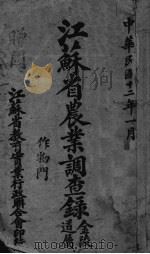 中華民國十二年一月
狗
江蘇省農業調查錄
金陵道屬
作物門
江蘇省教育實業行政聯合會印